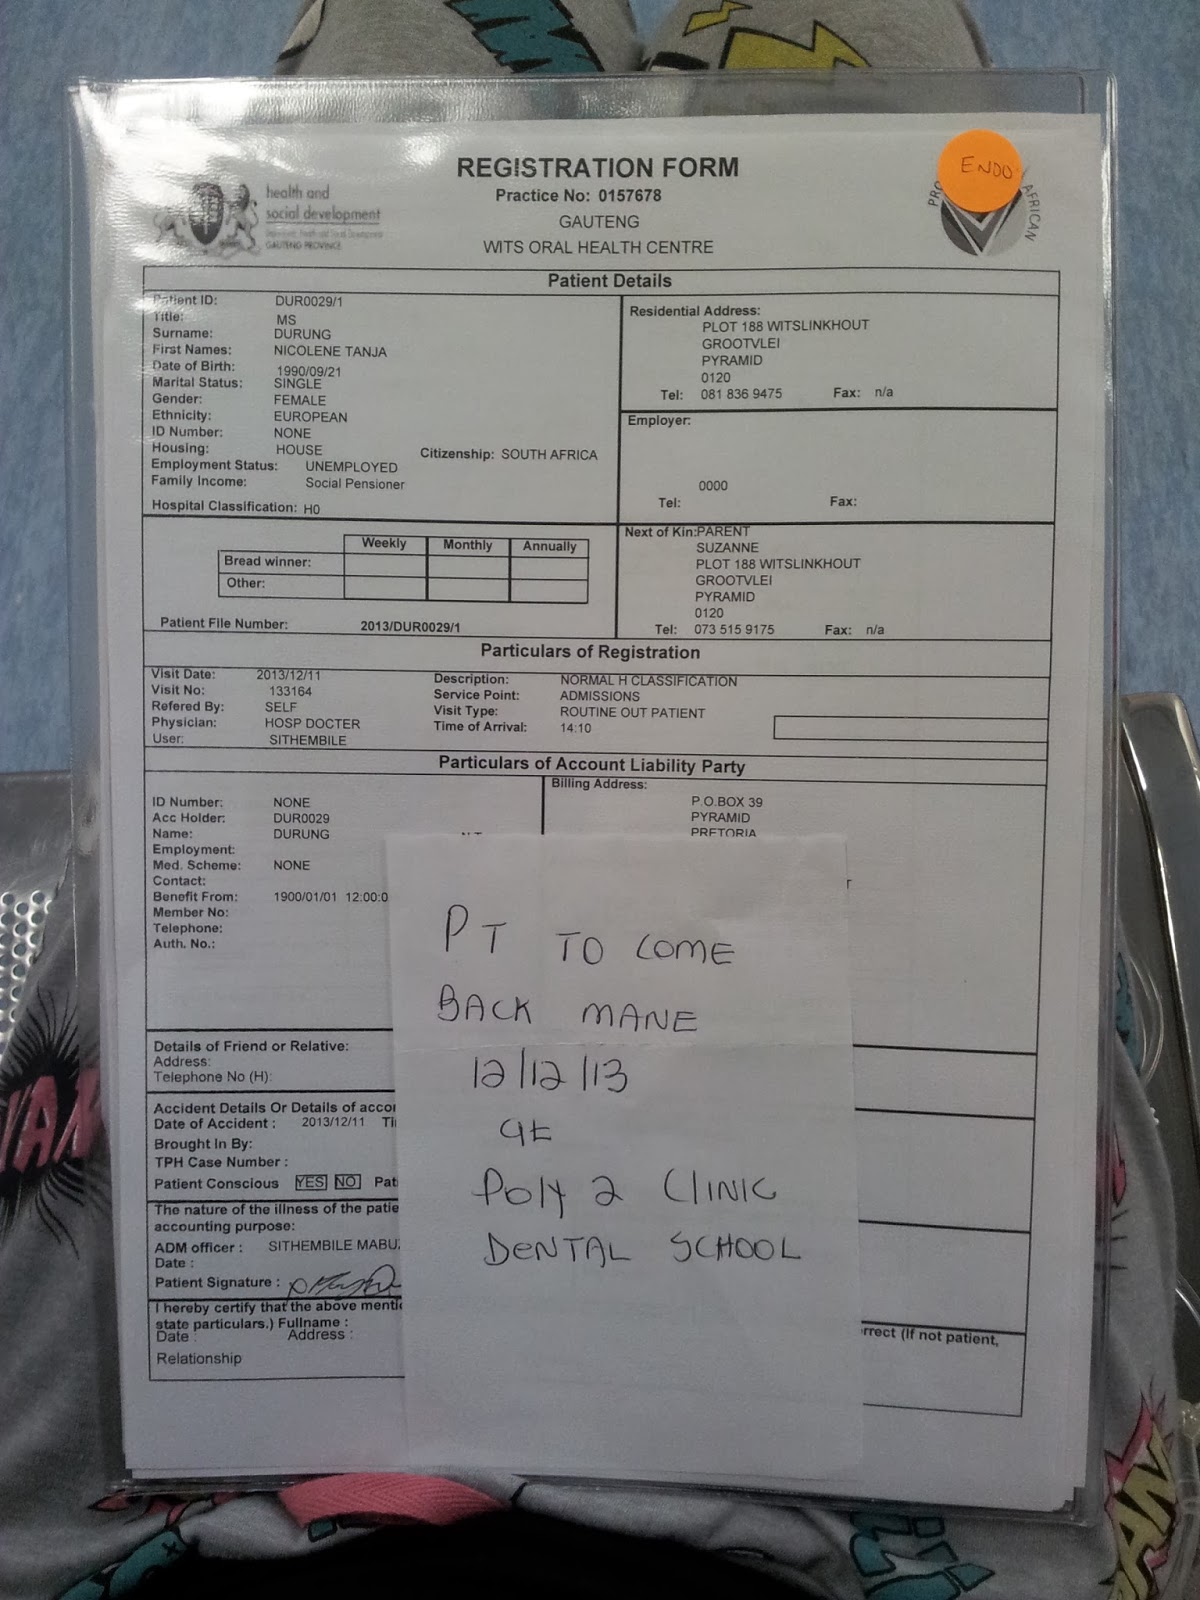 REGISTRATION FORM
Practice No: 0157678
GAUTENG
WITS ORAL HEALTH CENTRE
health and
social development
GAUTENG PROVINCE
ENDO
PRO
AFRICAN
Patient Details
Patient ID: DUR0029/1
Title: MS
Surname: DURUNG
First Names: NICOLENE TANJA
Date of Birth: 1990/09/21
Marital Status: SINGLE
Gender: FEMALE
Ethnicity: EUROPEAN
ID Number: NONE
Housing: HOUSE Citizenship: SOUTH AFRICA
Employment Status: UNEMPLOYED
Family Income: Social Pensioner
Hospital Classification: H0
Residential Address:
PLOT 188 WITSLINKHOUT
GROOTVLEI
PYRAMID
0120
Tel: 081 836 9475 Fax: n/a
Employer:
0000
Tel: Fax:
Weekly Monthly Annually
Bread winner:
Other:
Patient File Number: 2013/DUR0029/1
Next of Kin:PARENT
SUZANNE
PLOT 188 WITSLINKHOUT
GROOTVLEI
PYRAMID
0120
Tel: 073 515 9175 Fax: n/a
Particulars of Registration
Visit Date: 2013/12/11
Visit No: 133164
Refered By: SELF
Physician: HOSP DOCTER
User: SITHEMBILE
Description: NORMAL H CLASSIFICATION
Service Point: ADMISSIONS
Visit Type: ROUTINE OUT PATIENT
Time of Arrival: 14:10
Particulars of Account Liability Party
ID Number: NONE
Acc Holder: DUR0029
Name: DURUNG
Employment:
Med. Scheme: NONE
Contact:
Benefit From: 1900/01/01 12:00:0
Member No:
Telephone:
Auth. No.:
Billing Address:
P.O.BOX 39
PYRAMID
PRETORIA
PT TO COME
BACK MANE
12/12/13
Poly 2 CLINIC
DENTAL SCHOOL
Details of Friend or Relative:
Address:
Telephone No (H):
Accident Details Or Details of acco
Date of Accident : 2013/12/11 Ti
Brought In By:
TPH Case Number :
Patient Conscious YES NO Pat
The nature of the illness of the patie
accounting purpose:
ADM officer : SITHEMBILE MABU
Date :
Patient Signature :
I hereby certify that the above mentio
rrect (If not patient,
state particulars.) Fullname :
Date : Address :
Relationship